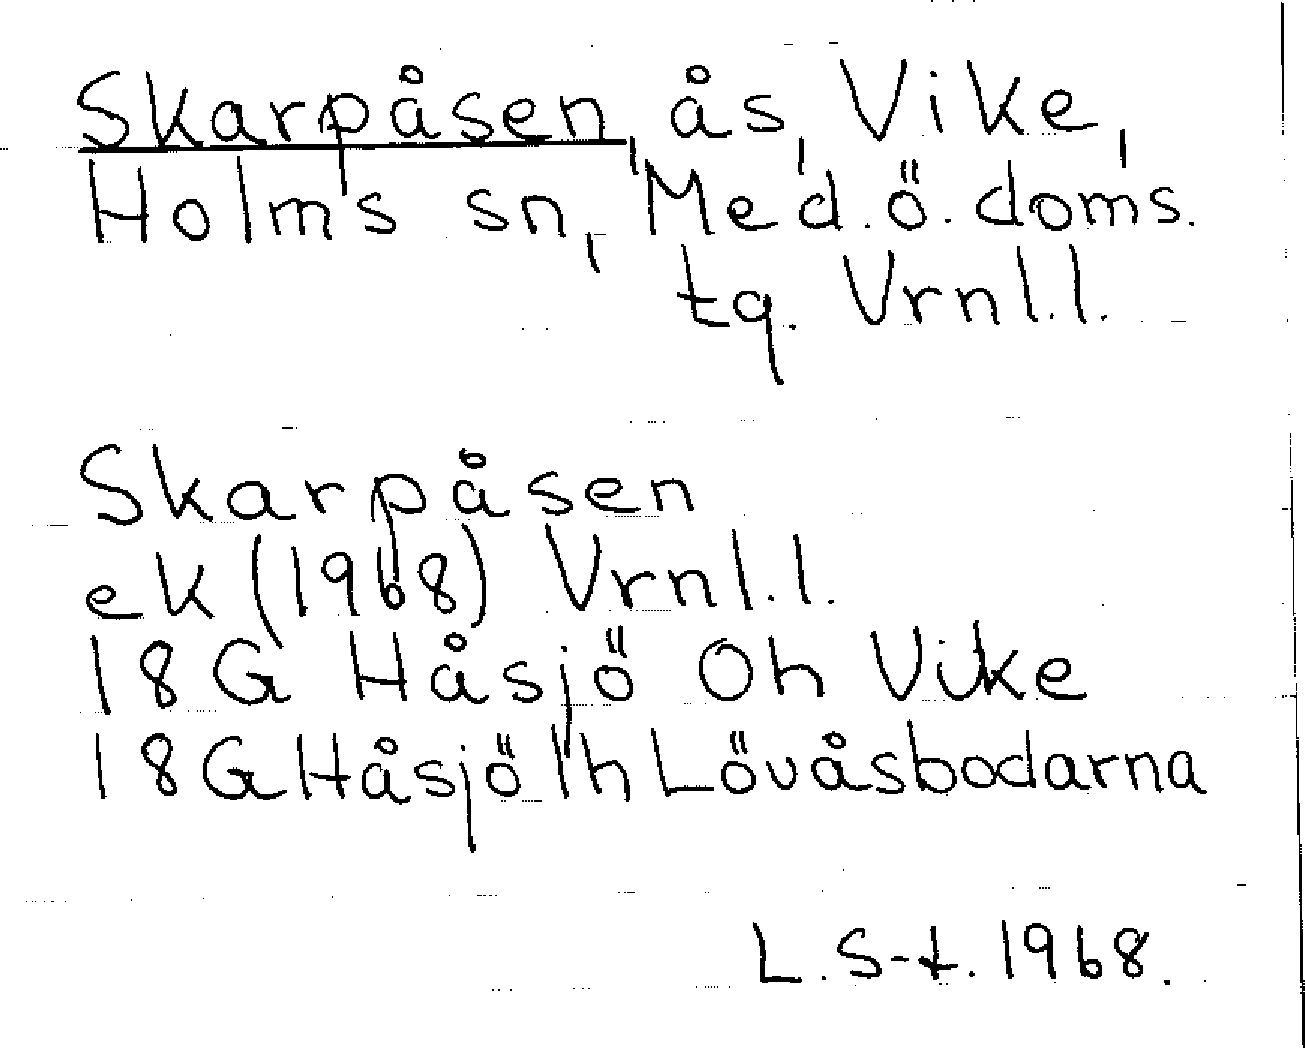 Skarpåsen, ås, Vike,
Holms sn, Med.ö. doms.
tg. Vrnl.l.
Skarpåsen
ek (1968) Vrnl.l.
18G Håsjö Oh Vike
18G Håsjö 1h Lövåsbodarna
L. S-t. 1968.